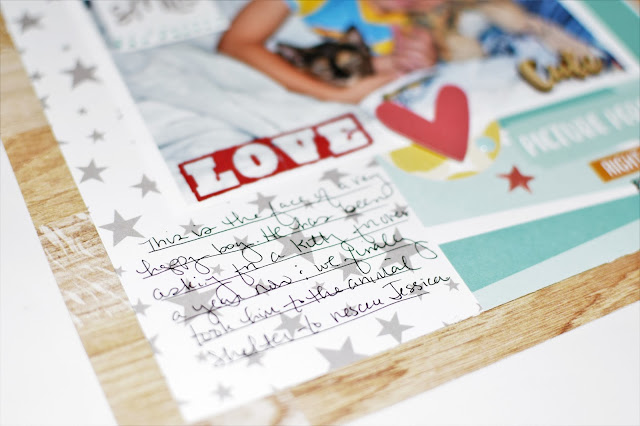 Cute
LOVE
PICTURE
This is the face of a very
happy boy. He has been
asking for a kitty for over
a year now & we finally
took him to the animal
shelter to rescue Jessica